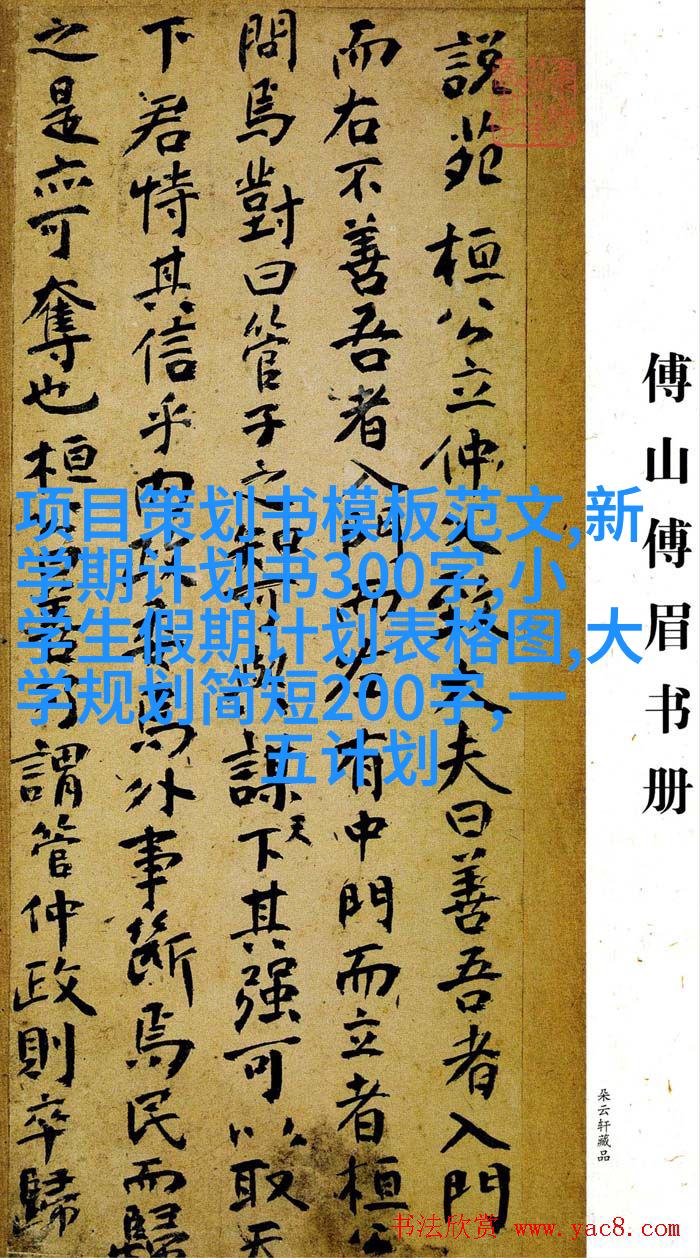 説苑 桓公立仲父致大夫曰善吾者入門
而右不善吾者入門而左有中門而立者桓公
問焉對曰管子之知可與謀天下其强可以取天
下君恃其信乎内政委焉外事斷焉民而歸
之是亦可奪也桓公曰善乃謂管仲政則卒歸
傅山傅眉书册
朵云轩藏品
项目策划书模板范文,新
学期计划书300字,小
学生假期计划表格图,大
学规划简短200字,一
五计划
书法欣赏 www.yac8.com